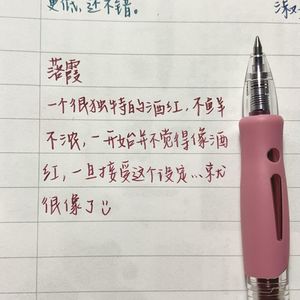 更似，还不错。
落霞
一个很独特的酒红，不鲜
不浓，一开始并不觉得像酒
红，一旦接受这个设定…就
很像了